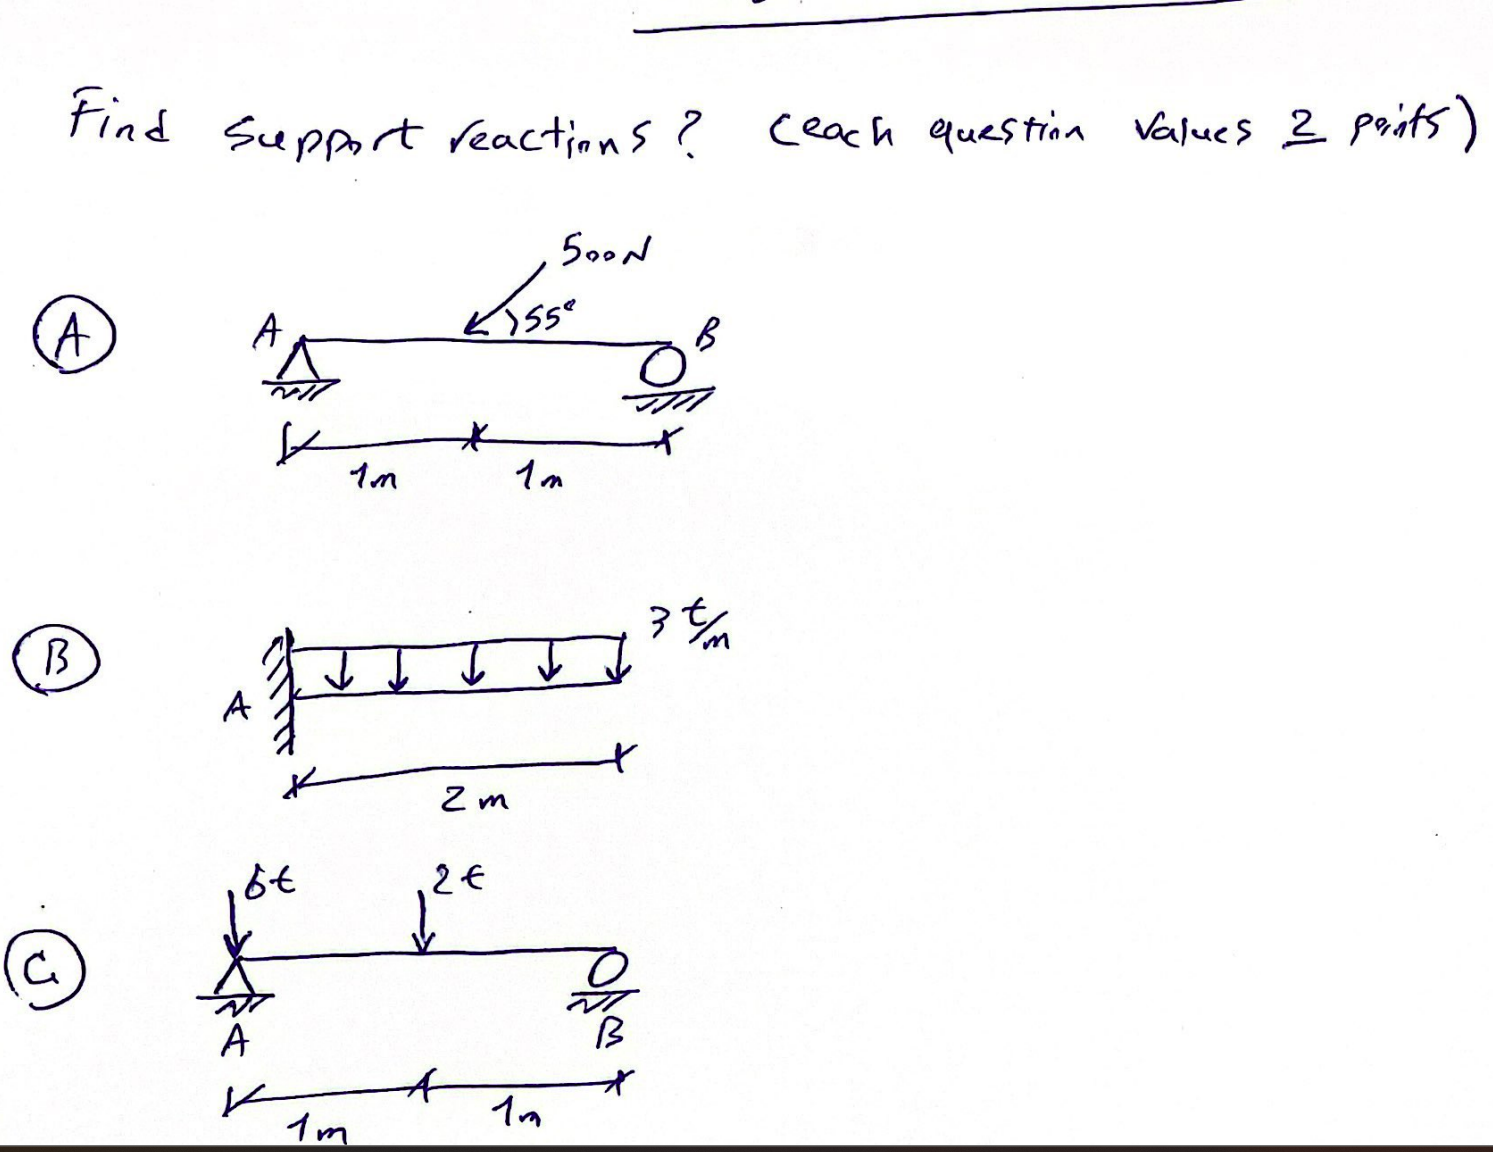 Find support reactions? (each question values 2 points)
500N
A
A
55°
B
1m 1m
B
3 t/m
A
2m
6t 2t
C
A B
1m 1m